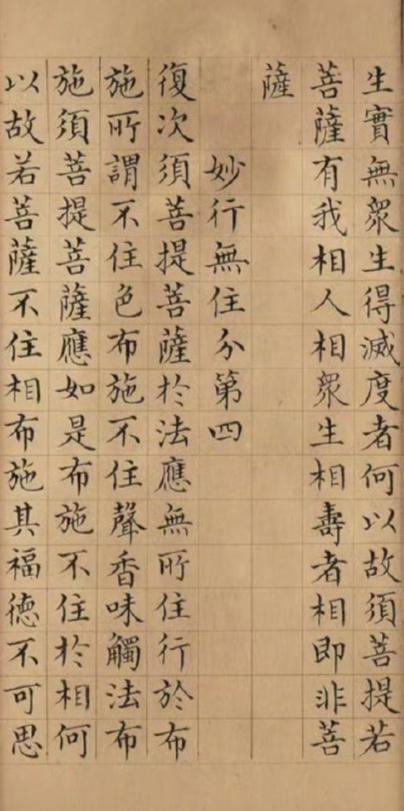 生實無眾生得滅度者何以故須菩提若
菩薩有我相人相眾生相壽者相即非菩
薩
妙行無住分第四
復次須菩提菩薩於法應無所住行於布
施所謂不住色布施不住聲香味觸法布
施須菩提菩薩應如是布施不住於相何
以故若菩薩不住相布施其福德不可思